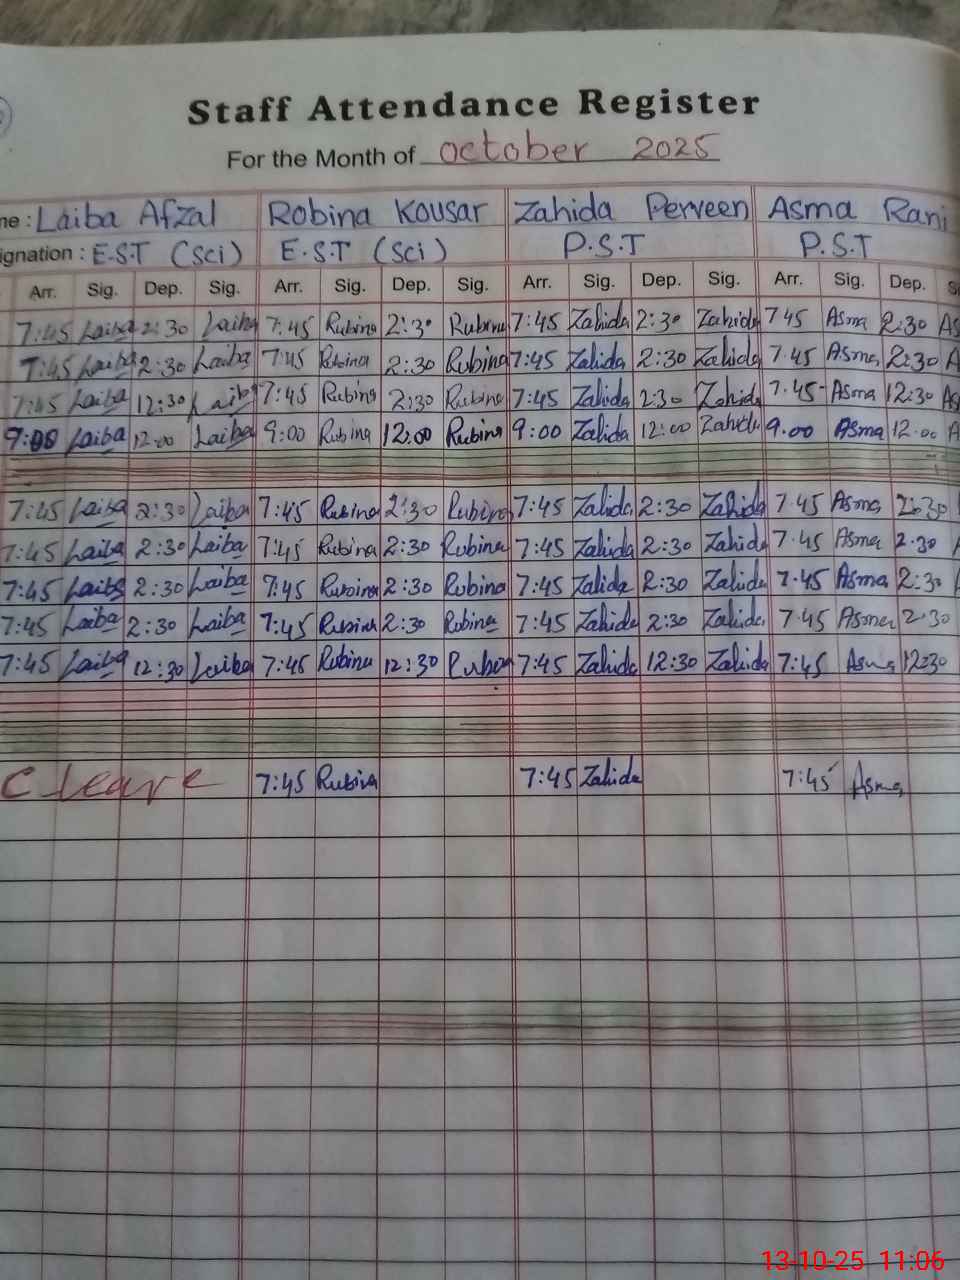 Staff Attendance Register
For the Month of October 2025
me : Laiba Afzal Robina Kousar Zahida Perveen Asma Rani
ignation : E.S.T (Sci) E.S.T (Sci) P.S.T P.S.T
Arr. Sig. Dep. Sig. Arr. Sig. Dep. Sig. Arr. Sig. Dep. Sig. Arr. Sig. Dep. S
7:45 Laiba 2:30 Laiba 7:45 Rubina 2:30 Rubina 7:45 Zahida 2:30 Zahida 7 45 Asma 2:30 As
7:45 Laiba 2:30 Laiba 7:45 Rubina 2:30 Rubina 7:45 Zahida 2:30 Zahida 7.45 Asma 2:30 A
7:45 Laiba 12:30 Laiba 7:45 Rubina 2:30 Rubina 7:45 Zahida 2:30 Zahida 7.45 Asma 12:30 As
9:00 Laiba 12:00 Laiba 9:00 Rubina 12:00 Rubina 9:00 Zahida 12:00 Zahida 9.00 Asma 12.00 A
7:45 Laiba 2:30 Laiba 7:45 Rubina 2:30 Rubina 7:45 Zahida 2:30 Zahida 7.45 Asma 2:30
7:45 Laiba 2:30 Laiba 7:45 Rubina 2:30 Rubina 7:45 Zahida 2:30 Zahida 7.45 Asma 2.30
7:45 Laiba 2:30 Laiba 7:45 Rubina 2:30 Rubina 7:45 Zahida 2:30 Zahida 7.45 Asma 2:30
7:45 Laiba 2:30 Laiba 7:45 Rubina 2:30 Robina 7:45 Zahida 2:30 Zahida 7.45 Asma 2:30
7:45 Laiba 12:30 Laiba 7:45 Rubina 12:30 Rubina 7:45 Zahida 12:30 Zahida 7:45 Asma 12:30
C leave 7:45 Rubina 7:45 Zahida 7:45 Asma
13-10-25 11:06